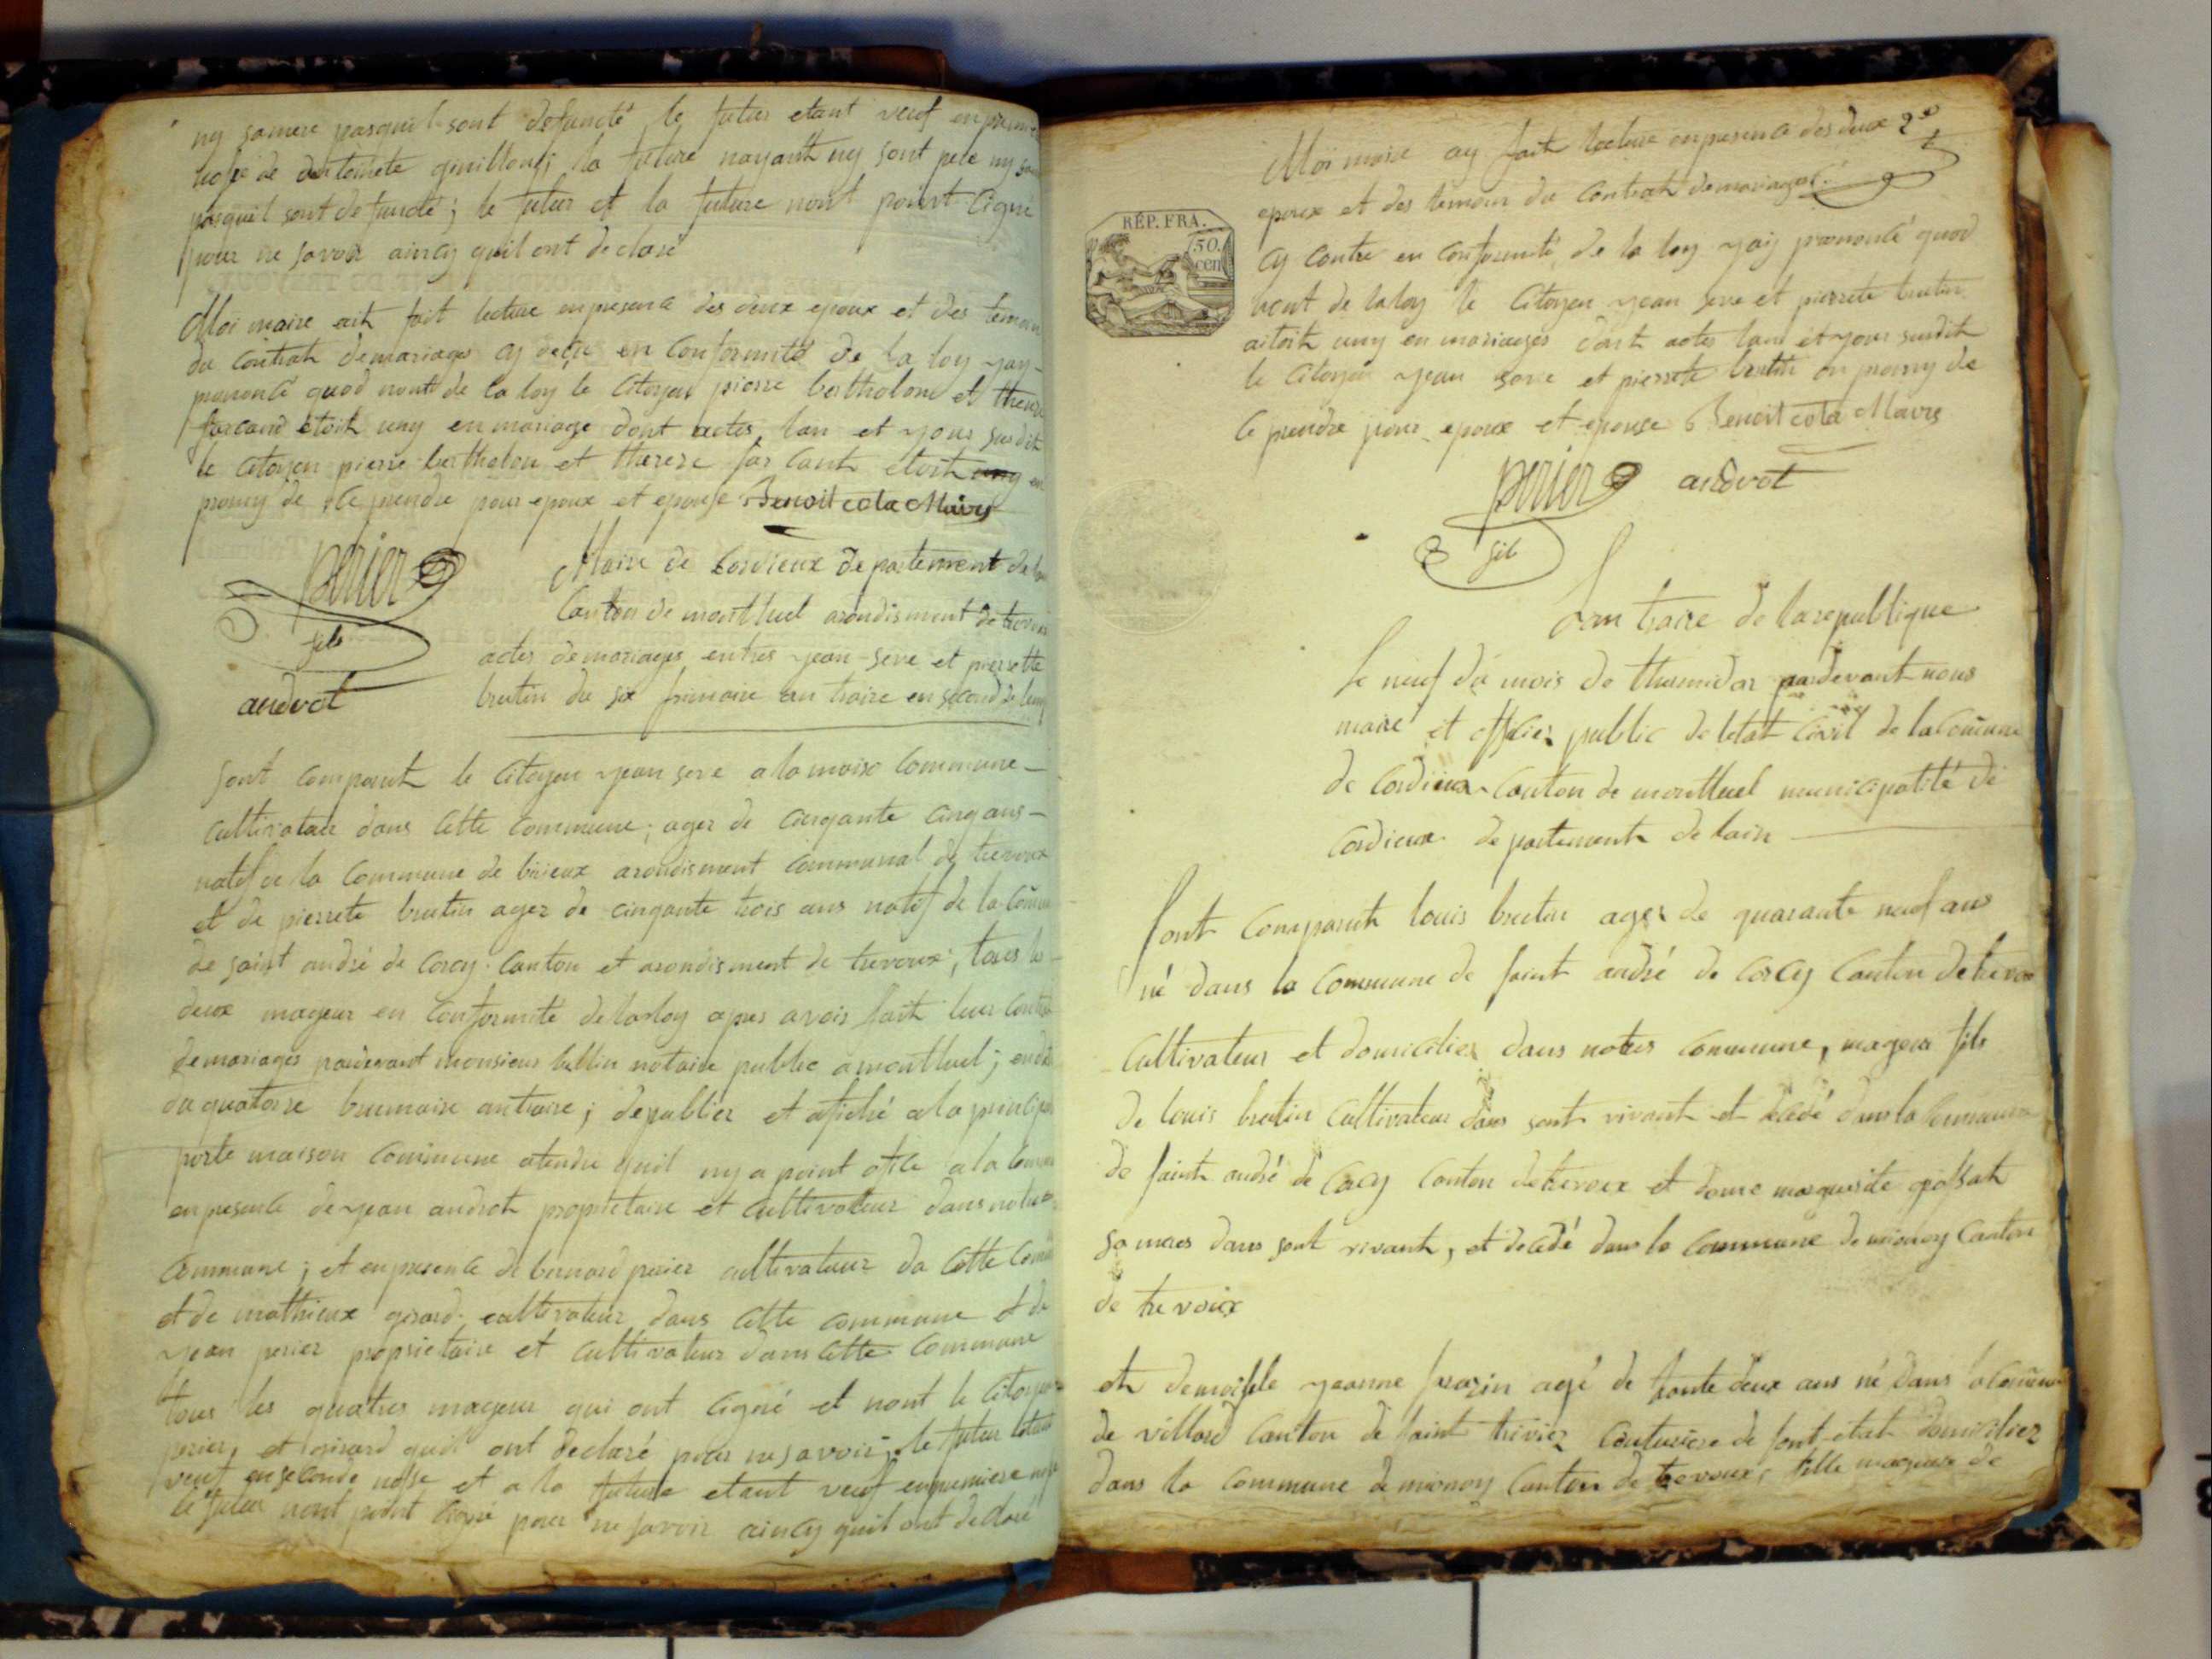 ny sa mere parsquil sont defuncté le futur etant veuf en premie
nosse de antoinete guillond; la future nayant ny sont pere ny sa
parsquil sont defuncté; le futur et la future nont point signé
pour ne savoir aincy quil ont declaré
Moi maire ait fait lecture en presence des deux epoux et des temoin
du contrat de mariages cy deçu en conformité de la loy jay
prononcé quod nom de la loy le citoyen pierre bertholon et therese
farcand etoit uny en mariage dont actes lan et jour susdit
le citoyen pierre bertholon et therese far cant etoit uny en
promy de ce prendre pour epoux et epouse Benoit cola Maire
perier
fils
androt
Maire de Cordieux departement de lain
Canton de montluel arondisment de trevoux
actes de mariages entres jean seve et pierrette
brutin du six frimaire an traize en second de
Sont comparut le citoyen jean seve a la maire commune
cultivateur dans cette commune; ager de cinqante cinq ans
natif de la commune de birieux arondisment communal de trevoux
et de pierrete brutin ager de cinqante trois ans natif de la comune
de saint andré de corcy canton et arondisment de trevoux; tous les
deux mageur en conformité de la loy apres avoir fait leur contrat
de mariages pardevant monsieur notaire public a montluel; en date
du quatorze brumaire an traize; de publier et afiché a la principale
porte maison commune atendu quil ny a point
en presence de jean androt proprietaire et cultivateur dans notre
commune; et en presence de bernard perier cultivateur da cette comune
et de mathieux girard cultivateur dans cette commune et de
jean perier proprietaire et cultivateur dans cette commune
tous les quatres mageur qui ont signé et nont le citoyen
perier et girard quil ont declaré pour ne savoir; le futur etant
veuf en seconde nosse et a la future etant veuf en premiere nosse
le futur nont point signé pour ne savoir aincy quil ont declaré
2e
Moi maire ay fait lecture en presence des deux
epoux et des temoin du contrat de mariages
cy contre en conformité de la loy jay prononcé quod
nom de la loy le citoyen jean seve et pierrete brutin
aitoit uny en mariages dont actes lan et jour susdit
le citoyen jean seve et pierrete brutin on promy de
ce prendre pour epoux et epouse Benoit cola Maire
RÉP. FRA.
50.
cen
perier androt
fils
Lan traize de la republique
le neuf du mois de thermidor pardevant nous
maire et officier public de letat civil de la comune
de Cordieux canton de montluel municipalité de
cordieux departement de lain
Sont comparut louis brutin ager de quarante neuf ans
né dans la commune de saint andré de corcy canton de trevoux
cultivateur et domicilier dans notres commune, mageur fils
de louis brutin cultivateur dans sont vivant et décedé dans la commune
de saint andré de corcy canton de trevoux et dame marguerite
sa meres dans sont vivant, et decedé dans la commune de mionoy canton
de trevoux
et demoiselle jeanne agé de trante deux ans né dans la comune
de villard canton de saint trivier couturiere de sont etat domicilier
dans la commune de mionoy canton de trevoux, fille mageure de